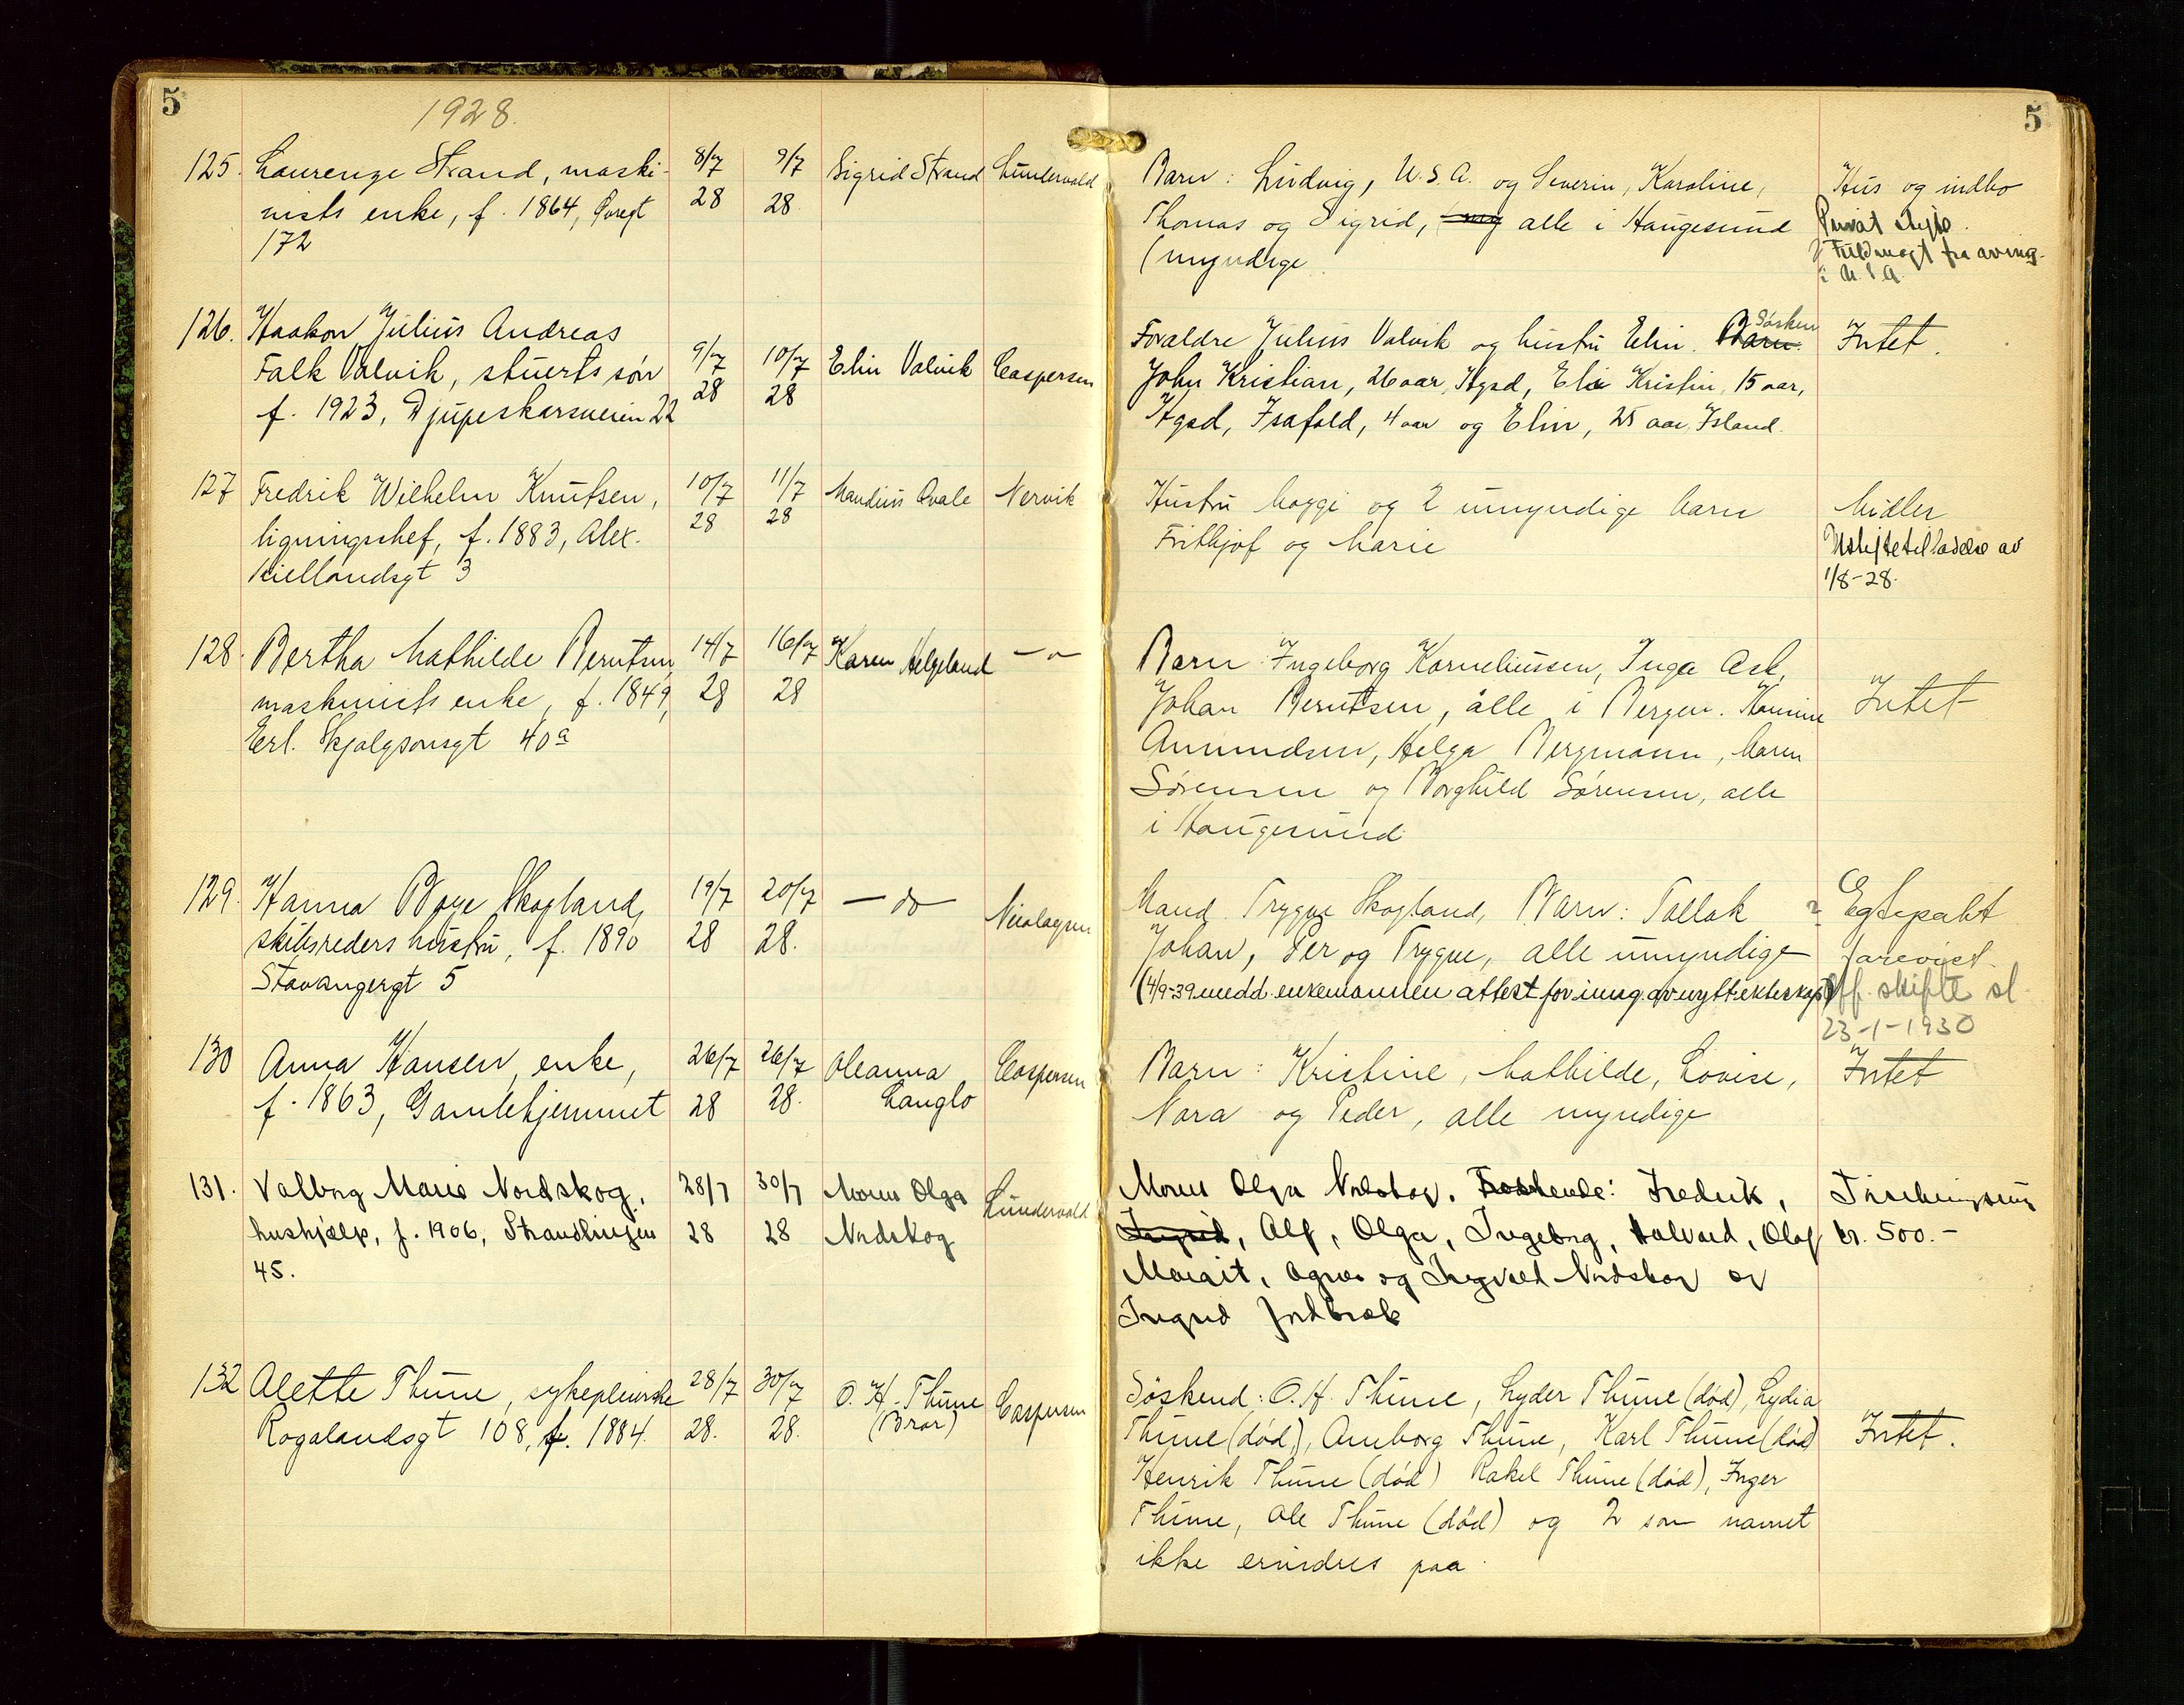 5
1928.
125. Laurenze Strand, maski-
nists enke, f. 1864, Øvregt
172
8/7
28
9/7
28
Sigrid Strand
Lundervold
Barn: Ludvig, U.S.A. og Severin, Karoline,
Thomas og Sigrid, alle i Haugesund
(myndige
Hus og indbo
Privat skifte.
Fuldmagt fra arving.
i U.S.A.
5
126. Haakon Julius Andreas
Falk Valvik, stuerts søn
f. 1923, Djupeskarsveien 22
9/7
28
10/7
28
Elin Valvik
Caspersen
Forældre Julius Valvik og hustru Elin. Barn. Søsken
John Kristian, 26 aar, Hgsd, Kristin, 15 aar,
Hgsd, Isafold, 4 aar og Elin, 25 aar, Island.
Intet.
127 Fredrik Wilhelm Knutsen,
ligningschef, f. 1883, Alex.
Kiellandsgt 3
10/7
28
11/7
28
Maudius Qvale
Nervik
Hustru Maggi og 2 umyndige barn
Frithjof og Marie
Midler
Uskiftetilladelse av
1/8-28.
128. Bertha Mathilde Berntsen,
maskinists enke, f. 1849,
Erl. Skjalgsonsgt 40a
14/7
28
16/7
28
Karen Helgeland
— " —
Barn: Ingeborg Korneliussen, Inga Ask,
Johan Berntsen, alle i Bergen.
Amundsen, Helga Bergmann, Maren
Sørensen og Borghild Sørensen, alle
i Haugesund
Intet
129. Hanna Boye Skogland,
skibsreders hustru, f. 1890
Stavangergt 5
19/7
28
20/7
28.
— do —
Nicolaysen
Mand Trygve Skogland, Barn: Tallak ?
Johan, Per og Trygve, alle umyndige
(4/9-39 medd. enkemannen attest for inng. av nytt ekteskap)
Egtepakt
forevist.
Off. skifte sl
23-1-1930
130 Anna Hansen, enke,
f. 1863, Gamlehjemmet
26/7
28
26/7
28.
Oleanna
Langlo
Caspersen
Barn: Kristine, Mathilde, Lovise,
Nora og Peder, alle myndige
Intet
131. Valborg Marie Nordskog,
hushjælp, f. 1906, Strandlinjen
45.
28/7
28
30/7
28
Moren Olga
Nordskog
Lundervold
Moren Olga Nordskog. Søskende: Fredrik,
Ingrid, Alf, Olga, Ingeborg, Halvard, Olaf
Margit, Agnes og Ingvald Nordskog og
Ingrid Jordbræk
kr. 500.-
132 Alette Thune, sykepleierske
Rogalandsgt 108, f. 1884.
28/7
28.
30/7
28.
O. H. Thune
(Bror)
Caspersen
Søskend: O. H. Thune, Lyder Thune (død), Lydia
Thune (død), Amborg Thune, Karl Thune (død)
Henrik Thune (død) Rakel Thune (død), Inger
Thune, Ole Thune (død) og 2 som navnet
ikke erindres paa.
Intet.